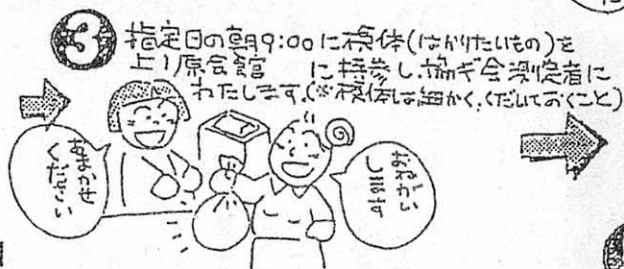 ③ 指定日の朝9:00に検体(はかりたいもの)を
上ノ原会館 に持参し、協ギ会測定者に
わたします。(※検体は細かく、くだいておくこと)
おまかせ
ください
おねがい
します